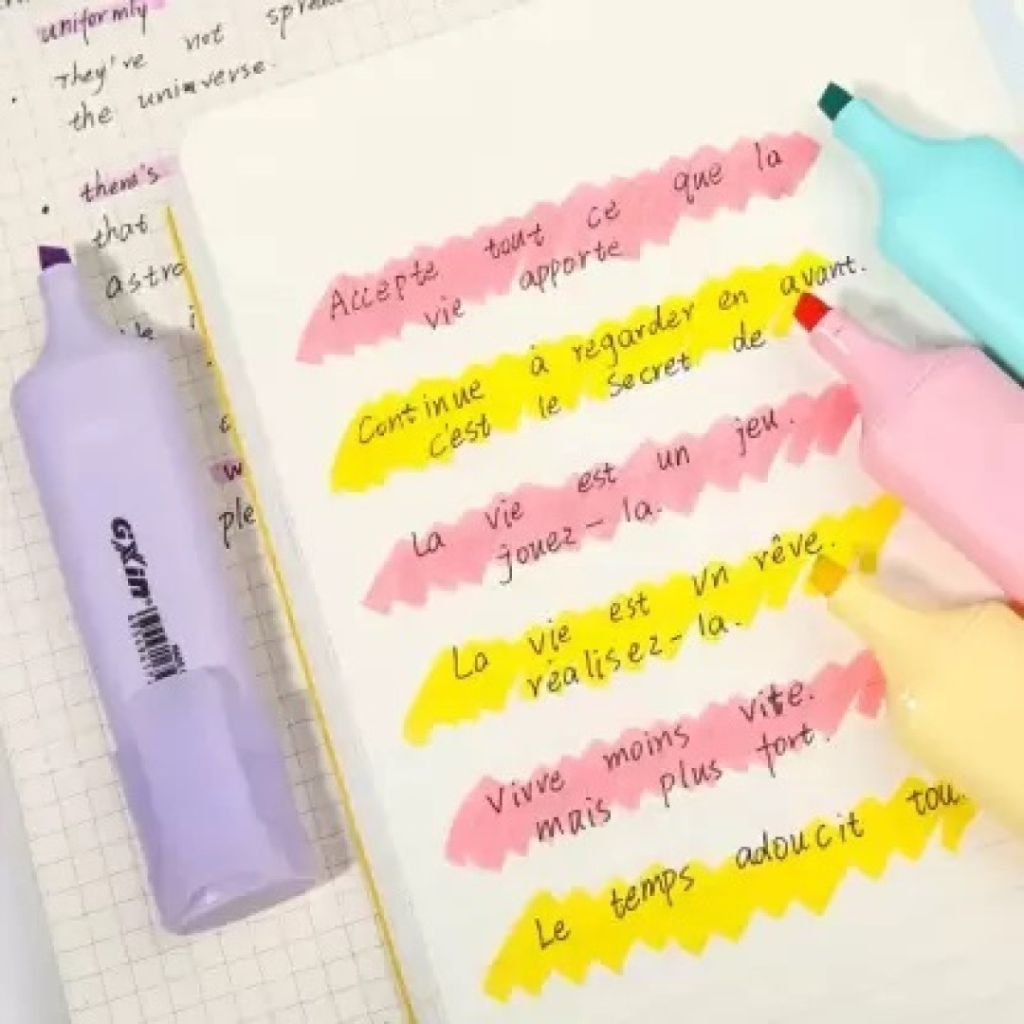 uniformly
They're not
the uninverse.
there's
that
astro
ple
GXin
Accepte tout ce que la
vie apporte
Continue à regarder en avant.
c'est le secret de
La vie est un jeu.
jouez-la.
La vie est Un rêve.
réalisez-la.
Vivre moins vite.
mais plus fort.
Le temps adoucit tou